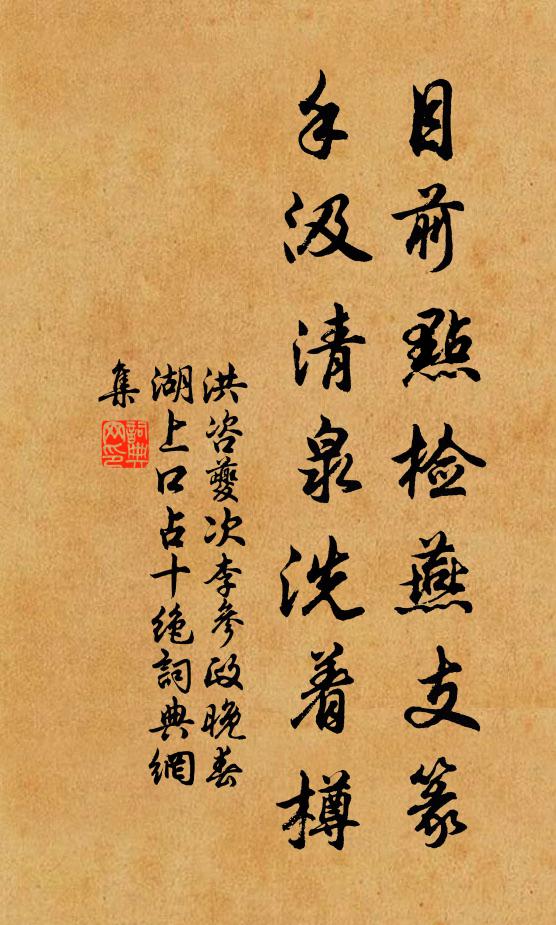 目前點檢燕支篆
手汲清泉洗着樽
洪咨夔次李參政晚春
湖上口占十絶詞典網
集
詞典网印